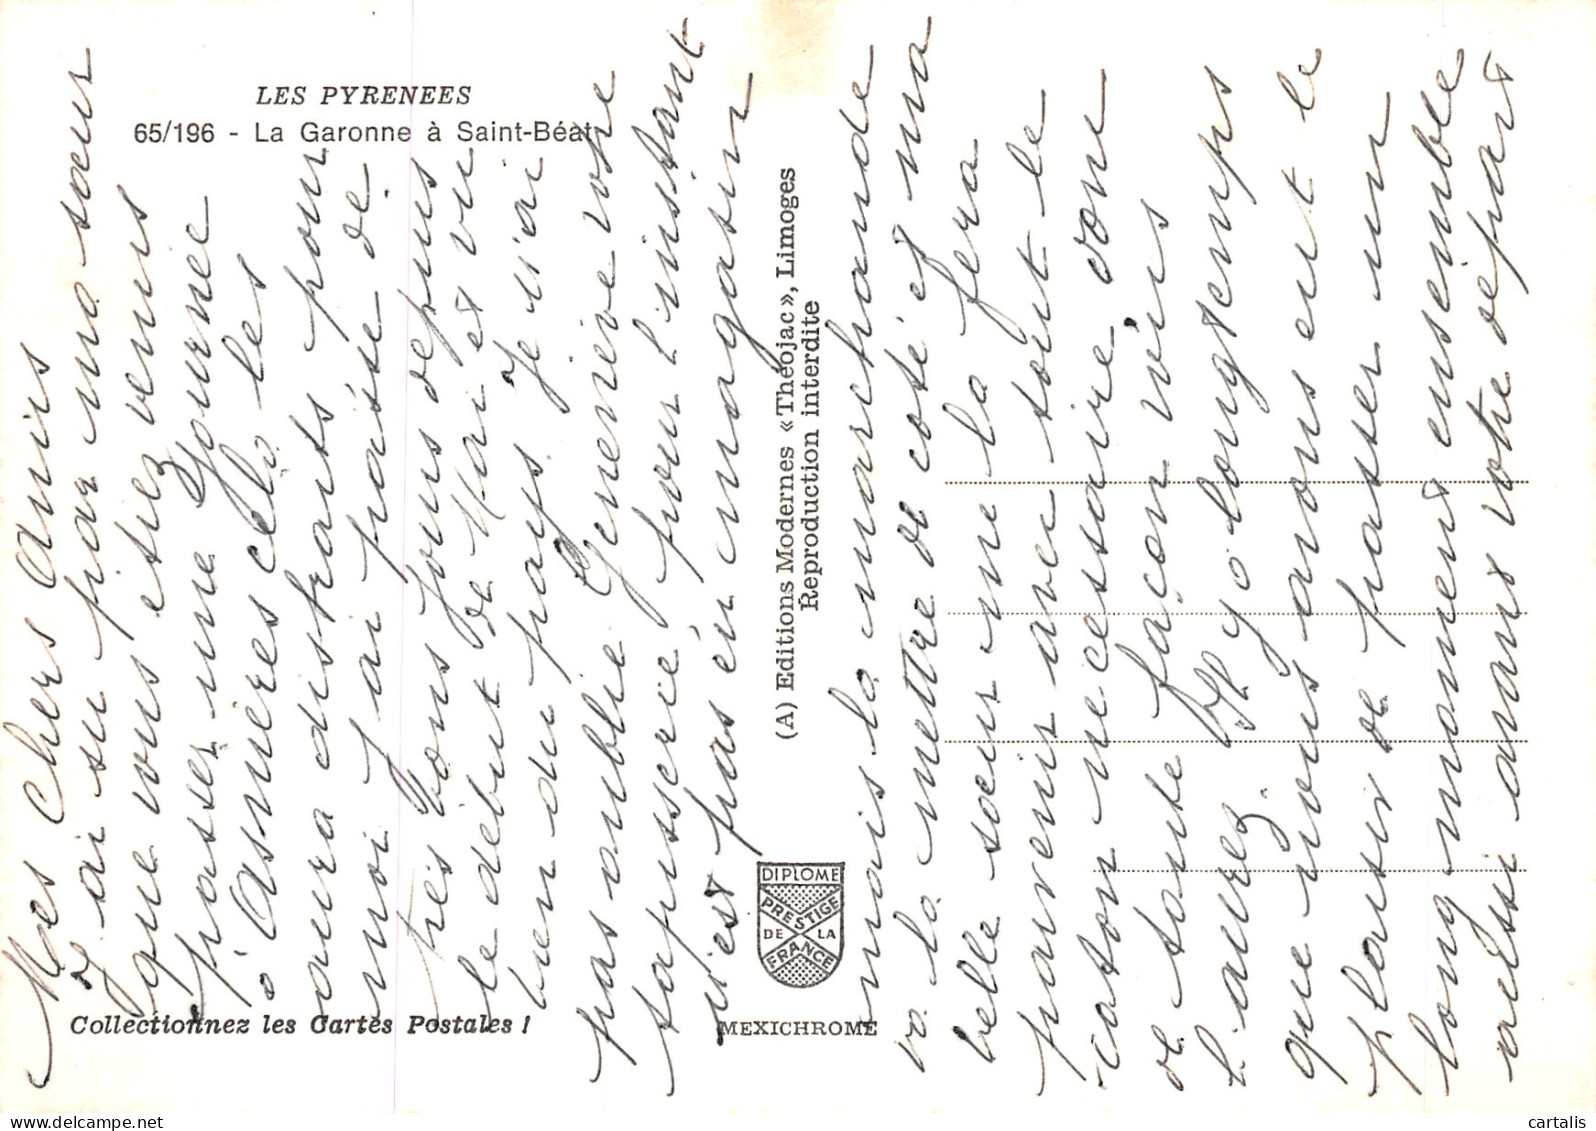 LES PYRENEES
65/196 - La Garonne à Saint-Béat
Mes Chers Amis
J'ai su par ma sœur
que vous étiez venus
passer une Journée
à Asnières celà les
aura distraits pour
moi j'ai passée de
très bons jours depuis
le début de Mai et vu
bien du pays. Je n'ai
pas oublié Geneviève votre
tapisserie pour l'instant
n'est pas en magasin
mais la marchande
va la mettre de coté et ma
belle sœur me la fera
parvenir avec tout le
caton nécessaire, donc
de toute façon vous
l'aurez. Il y a longtemps
que nous avons eut le
plaisir de passer un
long moment ensemble
aussi avant votre départ
(A) Editions Modernes «Théojac», Limoges
Reproduction interdite
DIPLOME
PRESTIGE
DE LA
FRANCE
MEXICHROME
Collectionnez les Cartes Postales !
cartalis